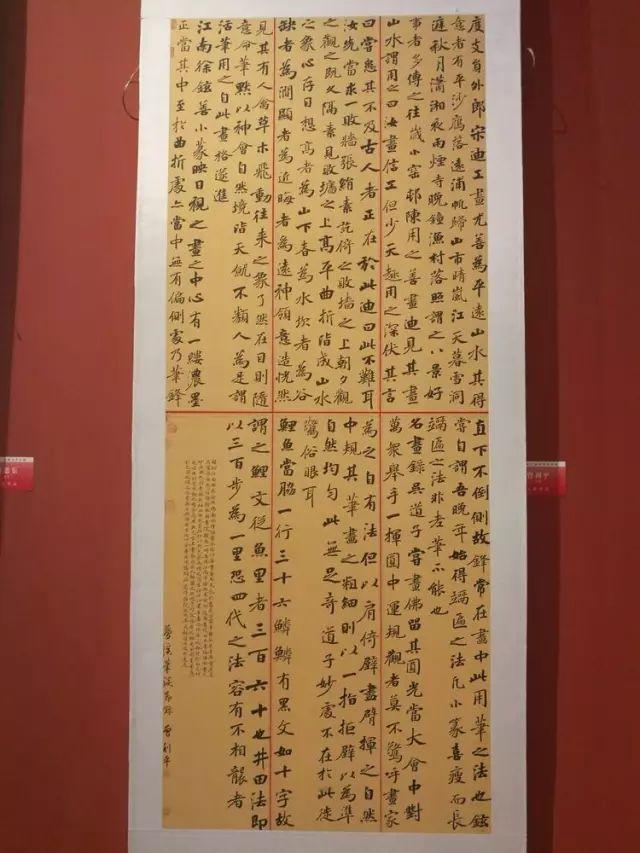 度支員外郎宋迪工畫尤善為平遠山水其得
意者有平沙鴈落遠浦帆歸山市晴嵐江天暮雪洞
庭秋月瀟湘夜雨煙寺晚鐘漁村落照謂之八景好
事者多傳之往歲小窑邨陳用之善畫迪見其畫
山水謂用之曰汝畫信工但少天趣用之深伏其言
曰嘗患其不及古人者正在於此迪曰此不難耳
汝先當求一敗牆張絹素訖倚之敗墻之上朝夕觀
之觀之既久隔素見敗墻之上高平曲折皆成山水
之象心存目想高者為山下者為水坎者為谷
缺者為澗顯者為近晦者為遠神領意造恍然
見其有人禽草木飛動往來之象了然在目則隨
意命筆默以神會自然境皆天就不類人為是謂
活筆用之自此畫格遂進
江南徐鉉善小篆映日視之畫之中心有一縷濃墨
正當其中至於曲折處亦當中無有偏側處乃筆鋒
直下不倒側故鋒常在畫中此用筆之法也鉉
嘗自謂吾晚年始得竵匾之法凡小篆喜瘦而長
竵匾之法非老筆不能也
名畫錄吳道子嘗畫佛留其圓光當大會中對
萬眾舉手一揮圓中運規觀者莫不驚呼畫家
為之自有法但以肩倚壁盡臂揮之自然
中規其筆畫之粗細則以一指拒壁以為準
自然均勻此無足奇道子妙處不在於此徒
驚俗眼耳
鯉魚當脇一行三十六鱗鱗有黑文如十字故
謂之鯉文從魚里者三百六十也井田法即
以三百步為一里恐四代之法容有不相襲者
夢溪筆談節錄 曾利平